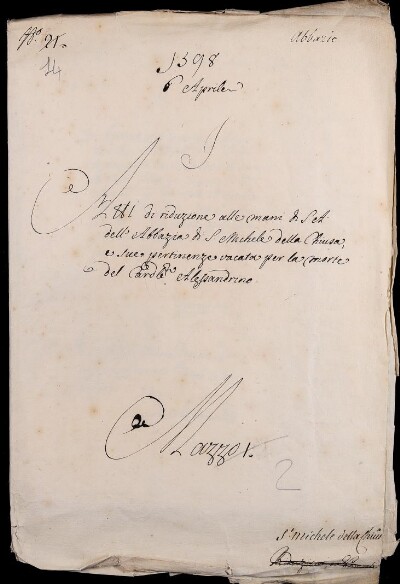 N.º 21.
Abbazie
14
1598
6 Aprile
I
Atti di riduzione alle mani di S. A.
dell'Abbazia di S. Michele della Chiusa,
e sue pertinenze vacata per la morte
del Cardle. Alessandrino.
Mazzo 1.
2
S. Michele della Chiusa